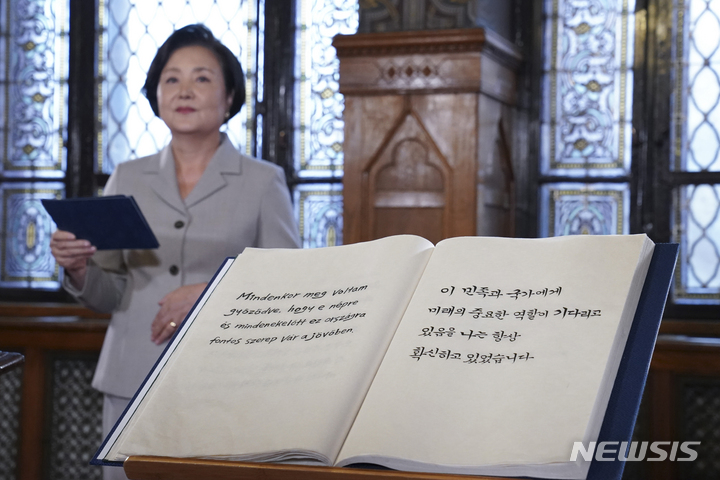 Mindenkor meg voltam
győződve, hogy e népre
és mindenekelőtt ez országra
fontos szerep vár a jövőben.
이 민족과 국가에게
미래의 중요한 역할이 기다리고
있음을 나는 항상
확신하고 있었습니다
NEWSIS